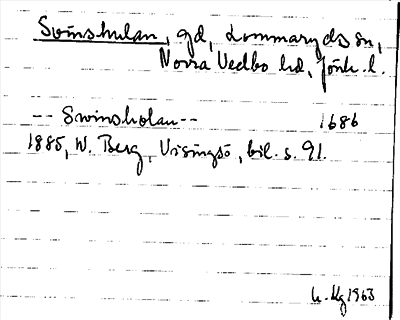 Svinshulan, gd, Lommaryds sn,
Norra Vedbo hd, Jönk. l.
-- Swinsholan -- 1686
1885, W. Berg, Visingsö, bil. s. 91.
1963